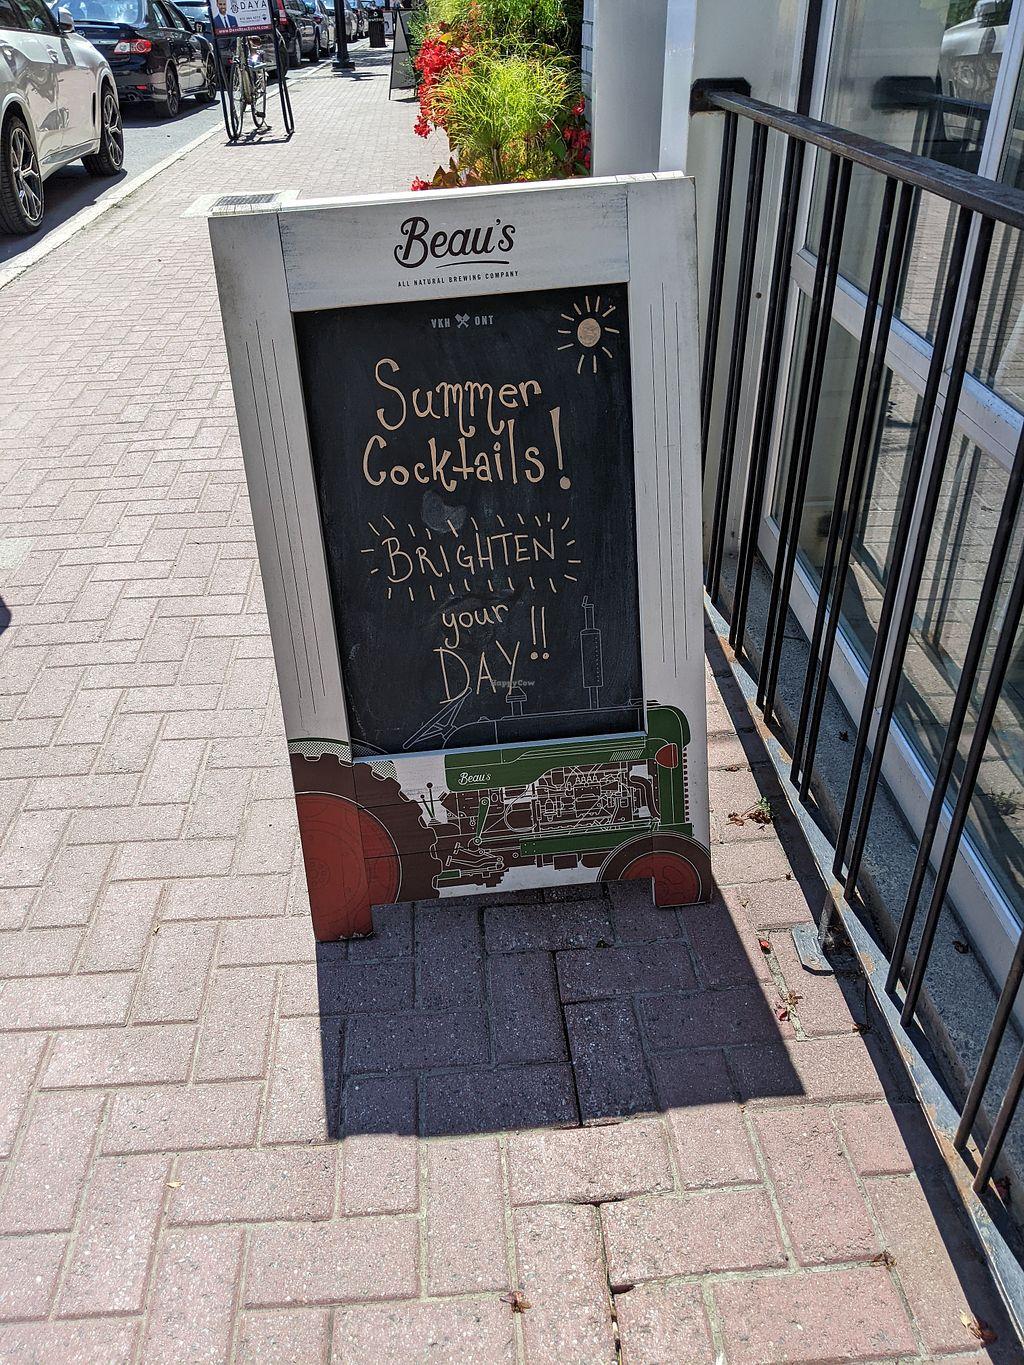 DAYA
Beau's
ALL NATURAL BREWING COMPANY
VKH ONT
Summer
Cocktails!
BRIGHTEN
your
DAY!!
HappyCow
Beau's